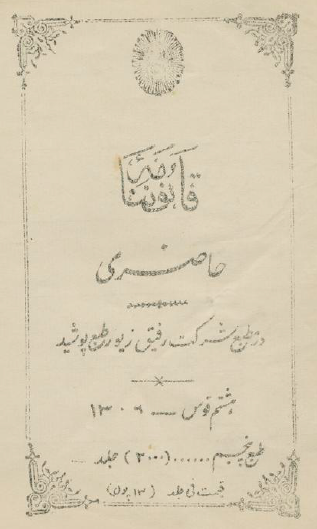 قانوننامه
حاضری
در مطبع شرکت رفیق زیور طبع پوشید
هشتم قوس ۱۳۰۶
طبع پنجم ...... (۲۰۰۰) جلد
قیمت فی جلد (۱۳ پول)